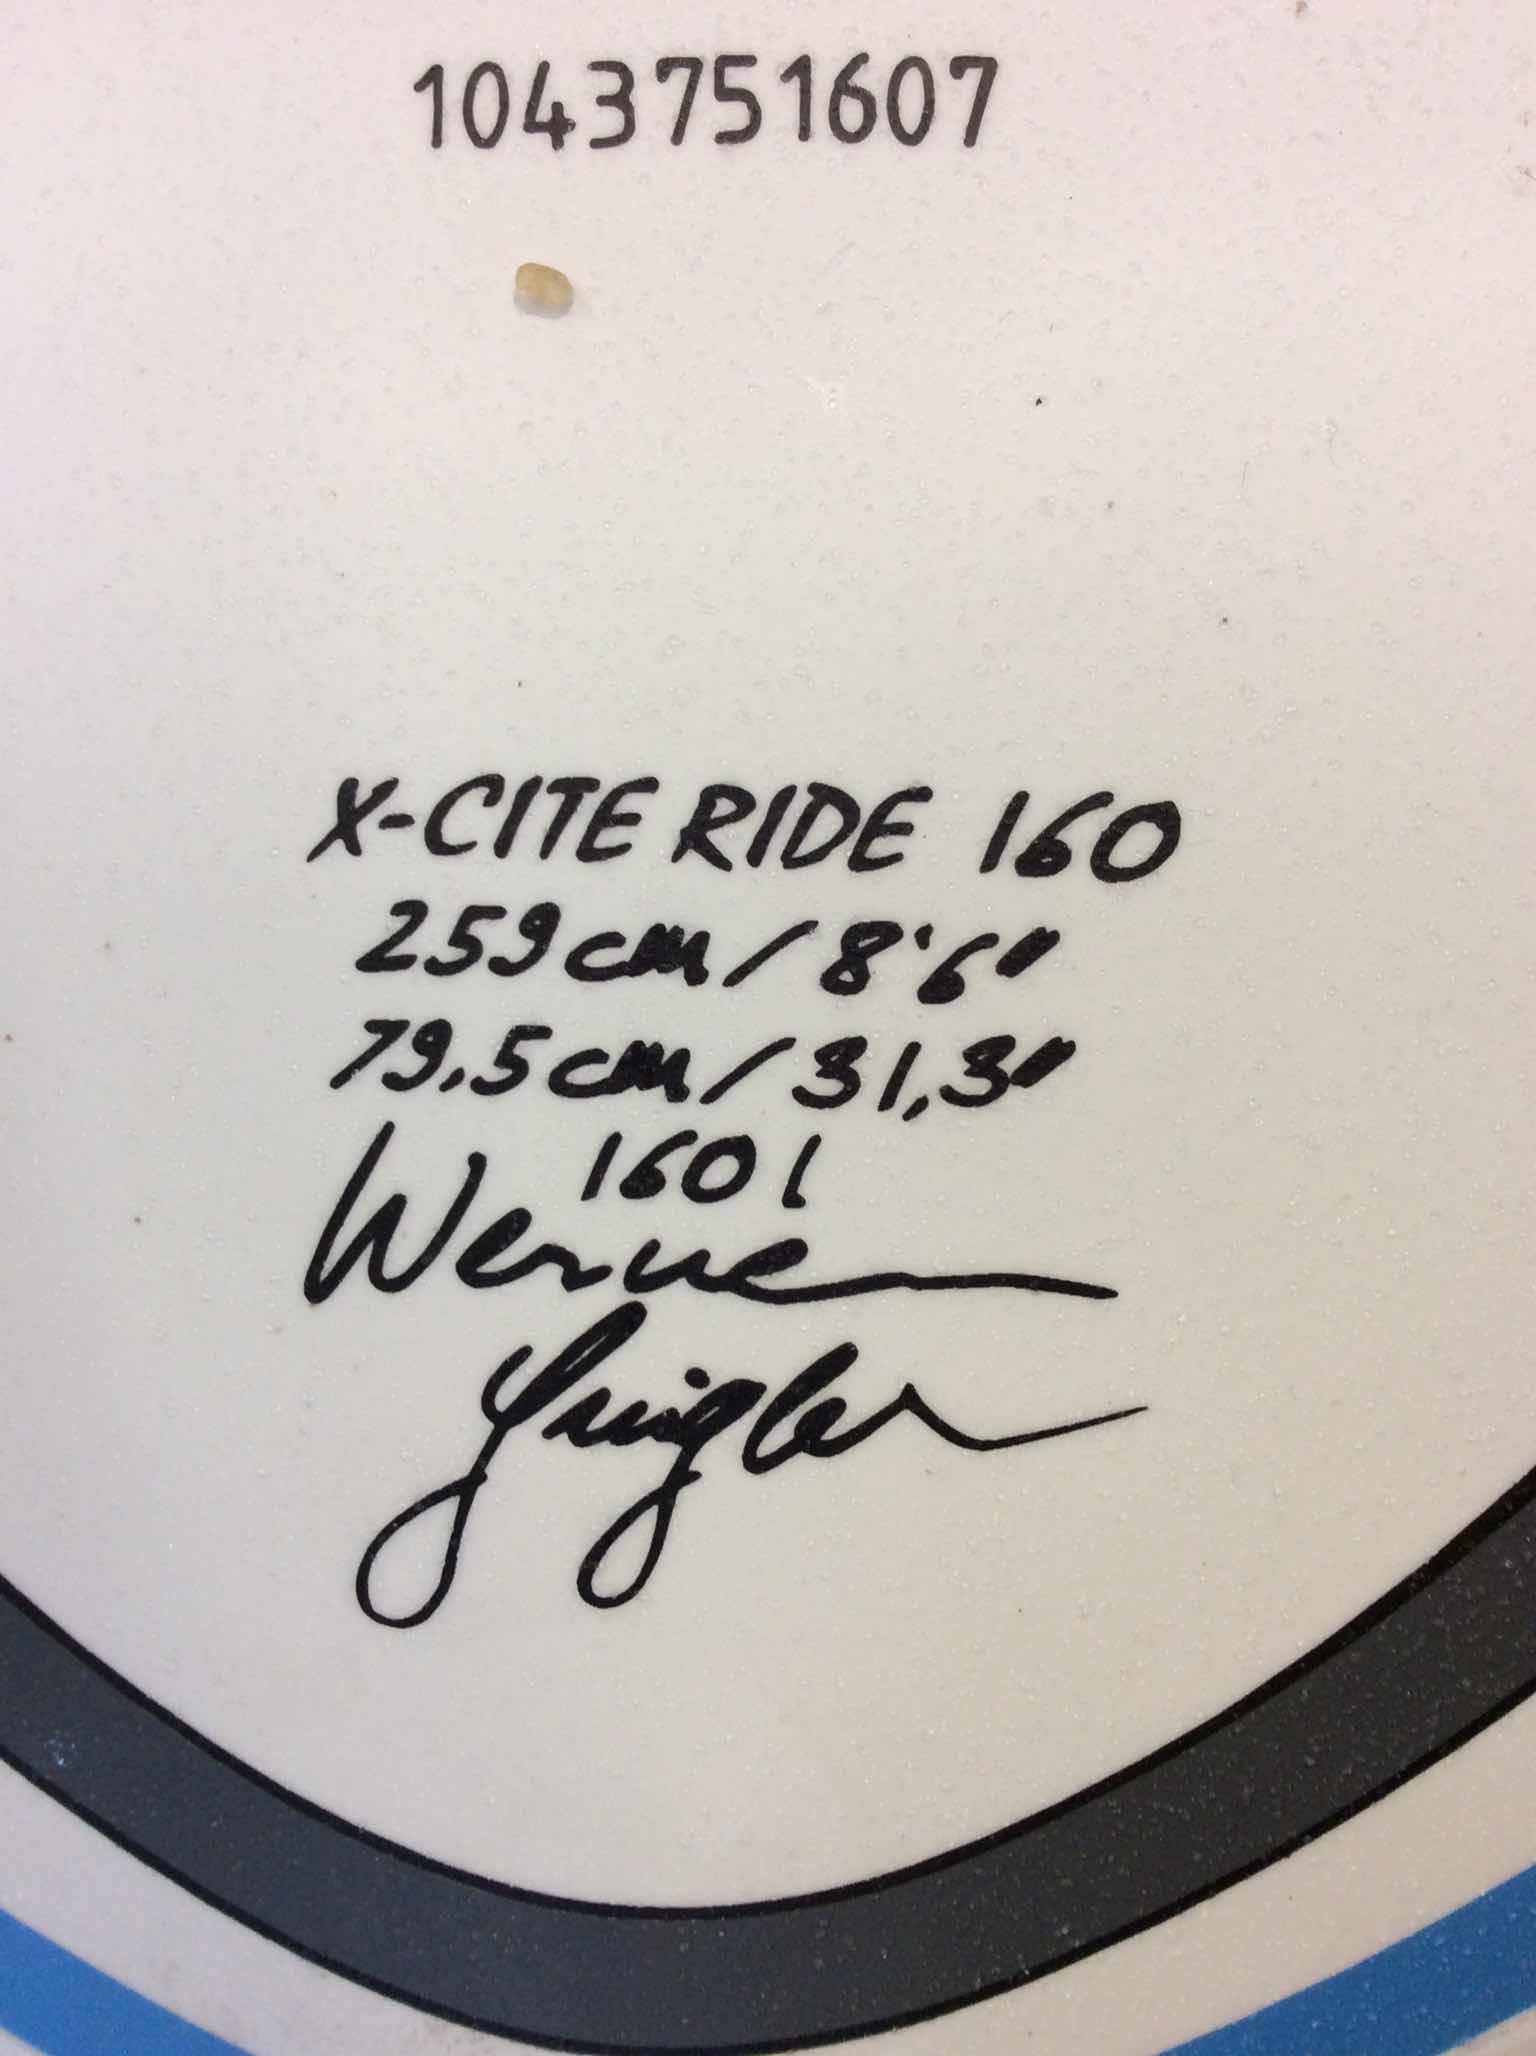 1043751607
X-CITE RIDE 160
259cm/8'6"
79,5cm/31,3"
160 l
Werner
Gnigler